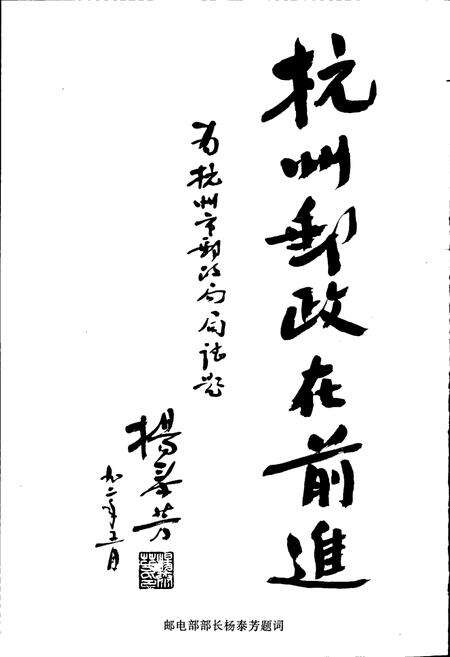 杭州郵政在前進
为杭州市郵政局局誌题
楊泰芳
九二年五月
邮电部部长杨泰芳题词